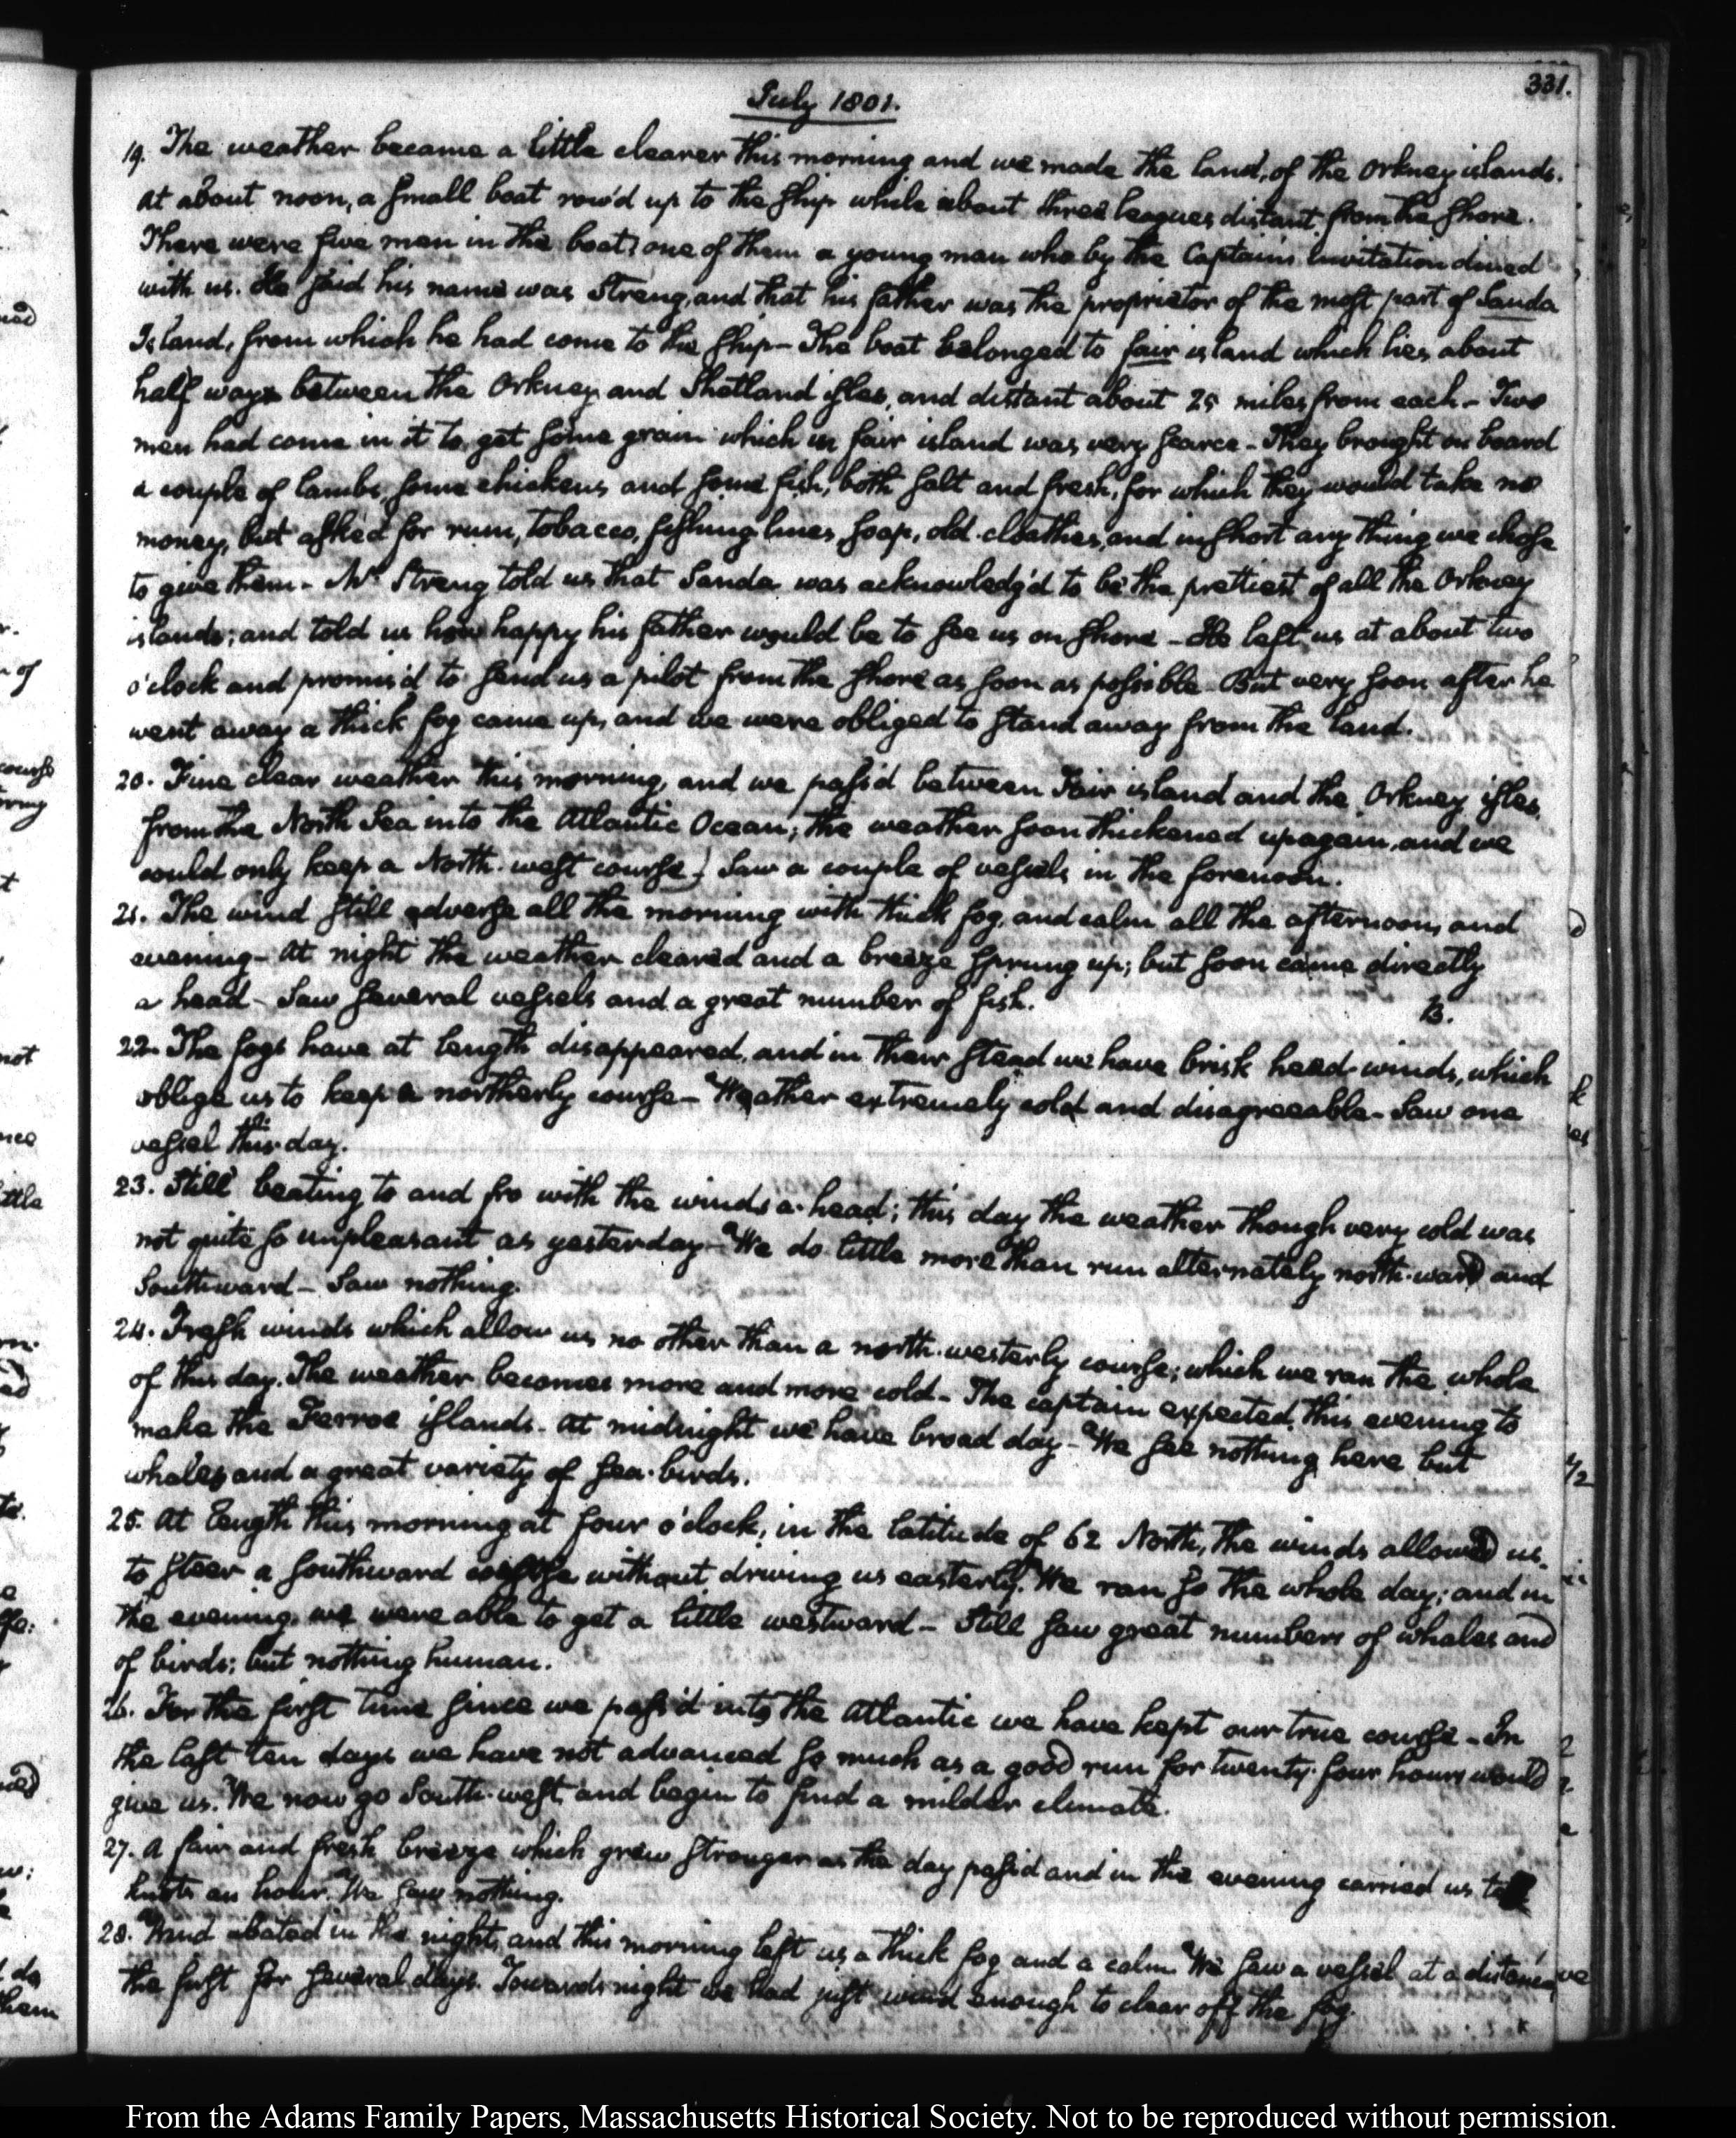 331.
July 1801.
19. The weather became a little clearer this morning and we made the land, of the Orkney islands.
At about noon, a small boat row'd up to the ship while about three leagues distant from the shore.
There were five men in the boat; one of them a young man who by the Captain's invitation dined
with us. He said his name was Strang, and that his father was the proprietor of the most part of Sanda
Island, from which he had come to the ship - The boat belonged to fair island which lies about
half way between the Orkney and Shetland isles, and distant about 25 miles from each - Two
men had come in it to get some grain which in fair island was very scarce - They brought on board
a couple of lambs some chickens and some fish, both salt and fresh, for which they would take no
money, but asked for rum, tobacco, fishing lines, soap, old cloathes, and in short any thing we chose
to give them - Mr. Strang told us that Sanda was acknowledg'd to be the prettiest of all the Orkney
islands; and told us how happy his father would be to see us on shore - He left us at about two
o'clock and promis'd to send us a pilot from the shore as soon as possible - But very soon after he
went away a thick fog came up, and we were obliged to stand away from the land.
20. Fine clear weather this morning, and we pass'd between Fair island and the Orkney isles,
from the North Sea into the Atlantic Ocean; the weather soon thickened up again, and we
could only keep a North-west course) Saw a couple of vessels in the forenoon.
21. The wind still adverse all the morning with thick fog, and calm all the afternoon, and
evening - At night the weather cleared and a breeze sprung up; but soon came directly
a head - Saw several vessels and a great number of fish.
B.
22. The fogs have at length disappeared, and in their stead we have brisk head-winds, which
oblige us to keep a northerly course - Weather extremely cold and disagreeable - Saw one
vessel this day.
23. Still beating to and fro with the winds a-head; this day the weather though very cold was
not quite so unpleasant as yesterday - We do little more than run alternately north-ward and
Southward - Saw nothing.
24. Fresh winds which allow us no other than a north-westerly course; which we ran the whole
of this day. The weather becomes more and more cold - The captain expected this evening to
make the Ferroe islands - At midnight we have broad day - We see nothing here but
whales and a great variety of sea-birds.
25. At length this morning at four o'clock, in the latitude of 62 North, the winds allowed us
to steer a southward course without driving us easterly. We ran so the whole day; and in
the evening we were able to get a little westward - Still saw great numbers of whales and
of birds; but nothing human.
26. For the first time since we pass'd into the Atlantic we have kept our true course - In
the last ten days we have not advanced so much as a good run for twenty-four hours would
give us. We now go South-west and begin to find a milder climate.
27. A fair and fresh breeze which grew stronger as the day pass'd and in the evening carried us
knots an hour. We saw nothing.
28. Wind abated in the night, and this morning left us a thick fog and a calm. We saw a vessel at a distance,
the first for several days. Towards night we had just wind enough to clear off the fog.
From the Adams Family Papers, Massachusetts Historical Society. Not to be reproduced without permission.